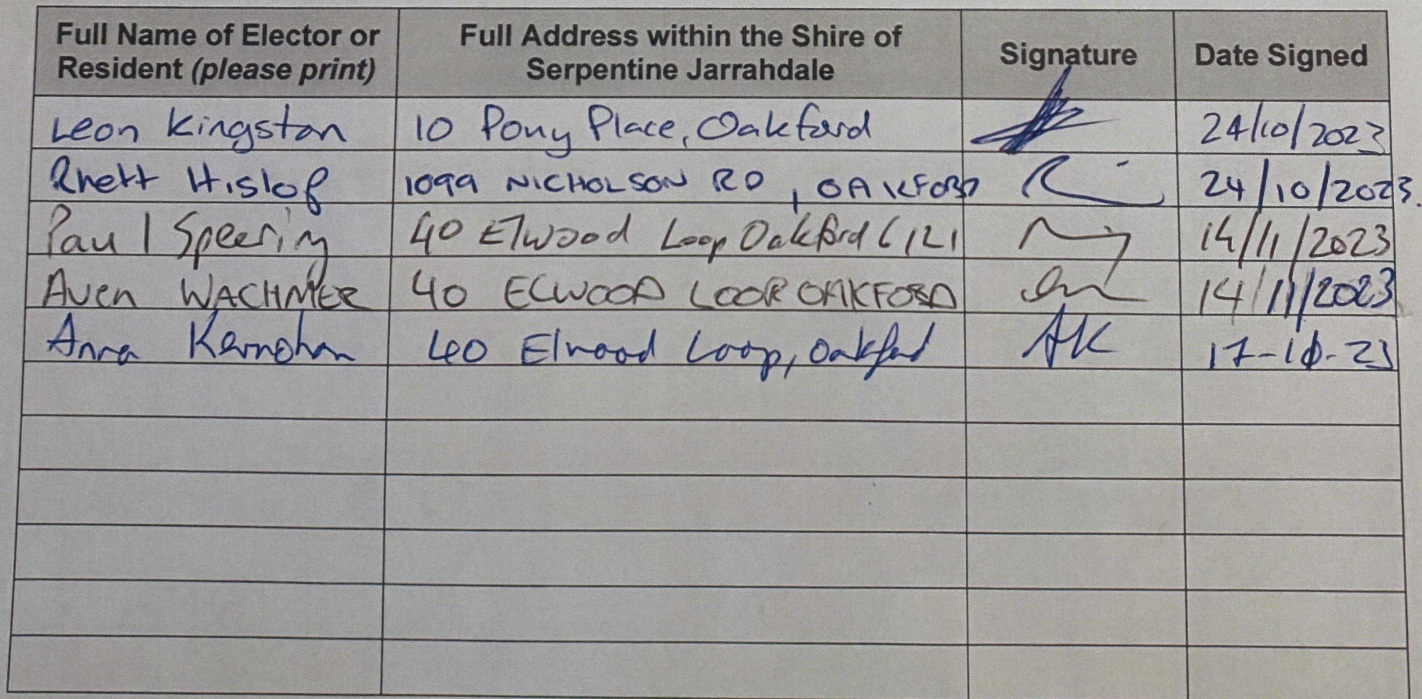 Full Name of Elector or Resident (please print) Full Address within the Shire of Serpentine Jarrahdale Signature Date Signed
Leon Kingston 10 Pony Place, Oakford 24/10/2023
Rhett Hislop 1099 NICHOLSON RD, OAKFORD 24/10/2023.
Paul Speering 40 Elwood Loop Oakford 6121 14/11/2023
Aven 40 ELWOOD LOOP OAKFORD 14/11/2023
Anna Kernohan 40 Elwood Loop, Oakford AK 17-10-23